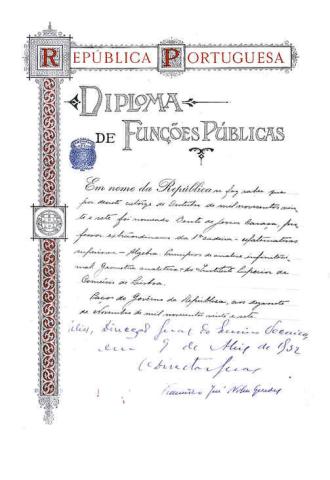 REPÚBLICA PORTUGUESA
DIPLOMA
DE FUNÇÕES PÚBLICAS
Em nome da República se faz saber que
por decreto catorze de Outubro de mil novecentos vin-
te e sete foi nomeado Bento de Jesus Caraça, pro-
fessor extraordinario da 1ª cadeira - Matematicas
superiores - Algebra, principios de analise infinitesi-
mal, Geometria analitica, do Instituto Superior de
Comércio de Lisboa.
Paços do Governo da Republica, aos dezanove
de Novembro de mil novecentos vinte e sete
Direcção Geral do Ensino Tecnico,
em 9 de de 1932
O Director Geral
Francisco